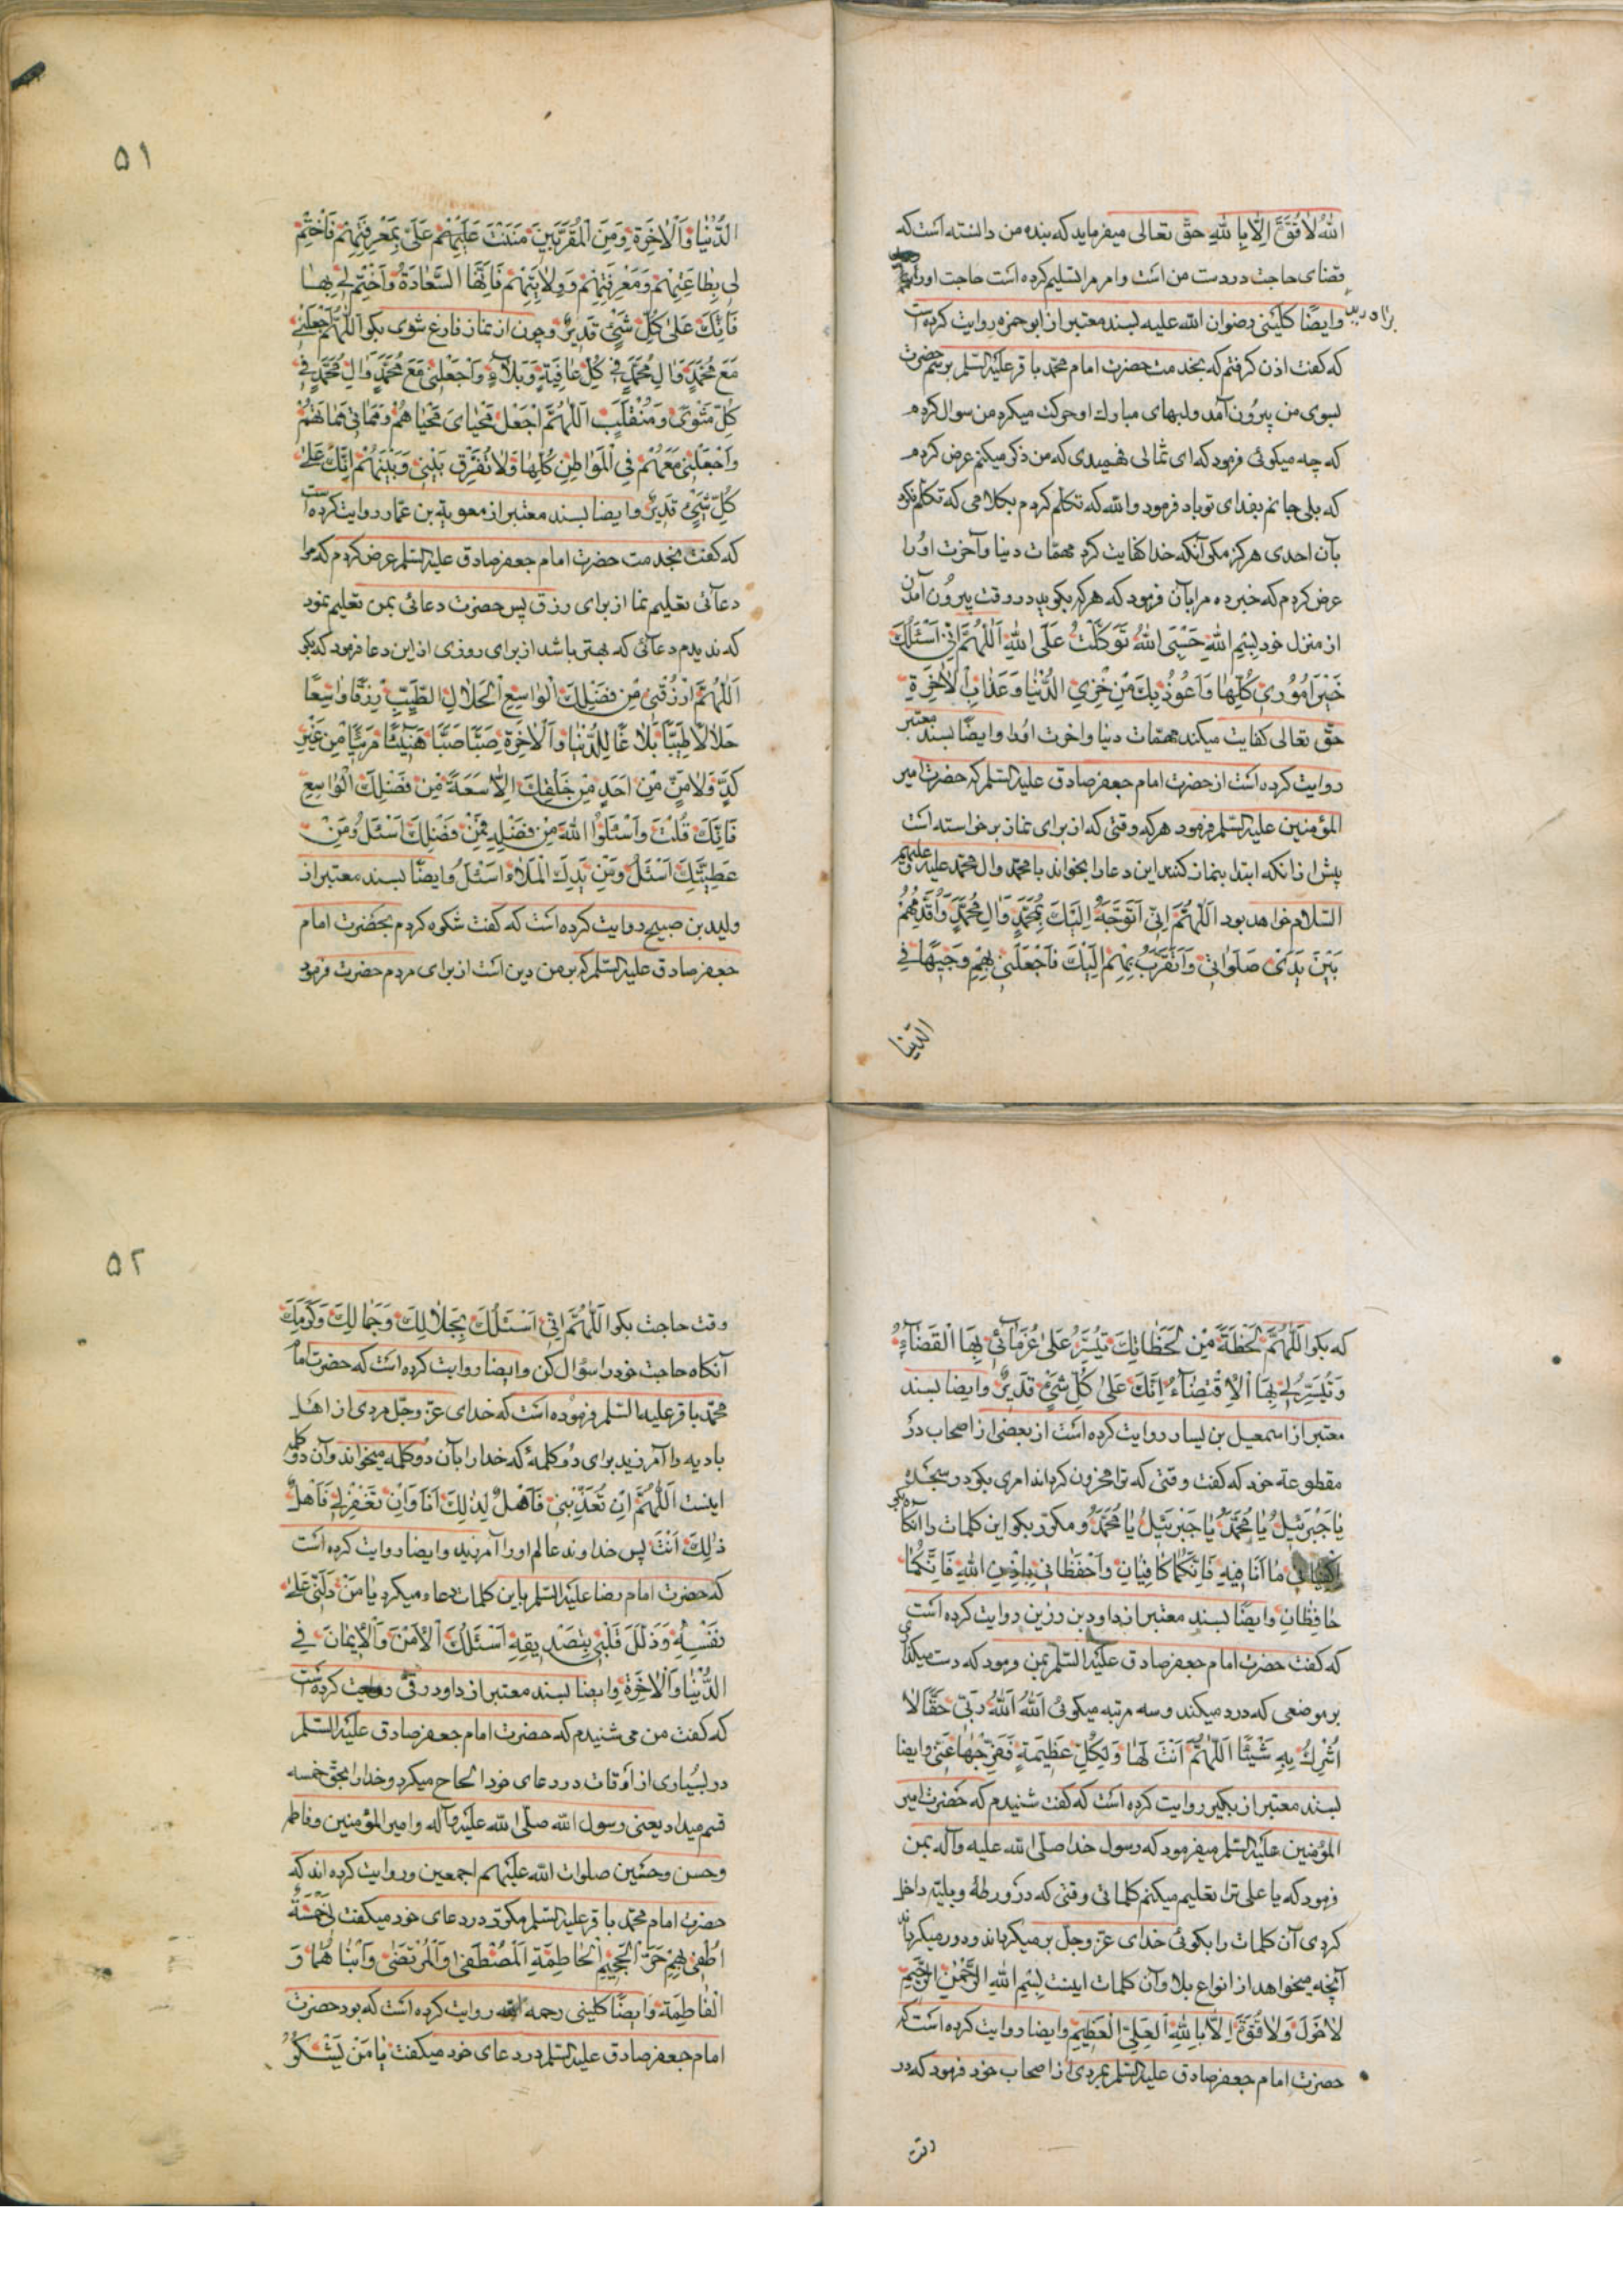 الله لا قوة الا بالله حق تعالی میفرماید که بنده من دانسته است که
قضای حاجت در دست من است و امر مرا تسلیم کرده است حاجت او را
برآورید
وایضا کلینی رضوان الله علیه بسند معتبر از ابو حمزه روایت کرده است
که گفت اذن گرفتم که بخدمت حضرت امام محمد باقر علیه السلم برسم حضرت
بسوی من بیرون آمد و لبهای مبارك او حرکت میکرد من سوال کردم
که چه میگوئی فرمود که ای ثمالی فهمیدی که من ذکر میکنم عرض کردم
که بلی جانم بفدای تو باد فرمود والله که تکلم کردم بکلامی که تکلم نکرد
بآن احدی هرگز مگر آنکه خدا کفایت کرد مهمات دنیا و آخرت او را
عرض کردم که خبر ده مرا بآن فرمود که هر که بگوید در وقت بیرون آمدن
از منزل خود بِسْمِ اللهِ حَسْبِیَ اللهُ تَوَکَّلْتُ عَلَی اللهِ اَللّٰهُمَّ اِنّی اَسْئَلُكَ
خَیْرَ اُمُوری کُلِّهٰا وَاَعُوذُ بِكَ مِنْ خِزْیِ الدُّنْیٰا وَعَذٰابِ الْاٰخِرَةِ
حق تعالی کفایت میکند مهمات دنیا و اخرت او را وایضا بسند معتبر
روایت کرده است از حضرت امام جعفر صادق علیه السلم که حضرت امیر
المؤمنین علیه السلم فرمود هر که وقتی که از برای نماز برخواسته است
پیش از انکه ابتدا بنماز کند این دعا را بخواند با محمد وال محمد علیه وعلیهم
السلام خواهد بود اَللّٰهُمَّ اِنّی اَتَوَجَّهُ اِلَیْكَ بِمُحَمَّدٍ وَاٰلِ مُحَمَّدٍ وَاُقَدِّمُهُمْ
بَیْنَ یَدَیْ صَلَوٰاتی وَاَتَقَرَّبُ بِهِمْ اِلَیْكَ فَاجْعَلْنی بِهِمْ وَجیهًا فِی
الدنیا
۵۱
الدُّنْیٰا وَالْاٰخِرَةِ وَمِنَ الْمُقَرَّبینَ مَنَنْتَ عَلَیْهِمْ عَلَیَّ بِمَعْرِفَتِهِمْ فَاخْتِمْ
لی بِطٰاعَتِهِمْ وَمَعْرِفَتِهِمْ وَوِلٰایَتِهِمْ فَاِنَّهَا السَّعٰادَةُ وَاخْتِمْ لی بِهٰا
فَاِنَّكَ عَلیٰ کُلِّ شَیْءٍ قَدیرٌ وچون از نماز فارغ شوی بگو اَللّٰهُمَّ اجْعَلْنی
مَعَ مُحَمَّدٍ وَاٰلِ مُحَمَّدٍ فی کُلِّ عٰافِیَةٍ وَبَلٰاءٍ وَاجْعَلْنی مَعَ مُحَمَّدٍ وَاٰلِ مُحَمَّدٍ فی
کُلِّ مَثْویً وَمُنْقَلَبٍ اَللّٰهُمَّ اجْعَلْ مَحْیٰایَ مَحْیٰاهُمْ وَمَمٰاتی مَمٰاتَهُمْ
وَاجْعَلْنی مَعَهُمْ فِی الْمَوٰاطِنِ کُلِّهٰا وَلٰا تُفَرِّقْ بَیْنی وَبَیْنَهُمْ اِنَّكَ عَلیٰ
کُلِّ شَیْءٍ قَدیرٌ وایضا بسند معتبر از معویة بن عمار روایت کرده است
که گفت بخدمت حضرت امام جعفر صادق علیه السلم عرض کردم که مرا
دعائی تعلیم نما از برای رزق پس حضرت دعائی بمن تعلیم نمود
که ندیدم دعائی که بهتر باشد از برای روزی از این دعا فرمود که بگو
اَللّٰهُمَّ ارْزُقْنی مِنْ فَضْلِكَ الْوٰاسِعِ الْحَلٰالِ الطَّیِّبِ رِزْقًا وٰاسِعًا
حَلٰالًا طَیِّبًا بَلٰاغًا لِلدُّنْیٰا وَالْاٰخِرَةِ صَبًّا صَبًّا هَنیئًا مَریئًا مِنْ غَیْرِ
کَدٍّ وَلٰا مَنٍّ مِنْ اَحَدٍ مِنْ خَلْقِكَ اِلّٰا سَعَةً مِنْ فَضْلِكَ الْوٰاسِعِ
فَاِنَّكَ قُلْتَ وَاسْئَلُوا اللهَ مِنْ فَضْلِهِ فَمِنْ فَضْلِكَ اَسْئَلُ وَمِنْ
عَطِیَّتِكَ اَسْئَلُ وَمِنْ یَدِكَ الْمَلْأَ اَسْئَلُ وایضًا بسند معتبر از
ولید بن صبیح روایت کرده است که گفت شکوه کردم بحضرت امام
جعفر صادق علیه السلم که بر من دین است از برای مردم حضرت فرمود
که بگو اَللّٰهُمَّ لَحْظَةً مِنْ لَحَظٰاتِكَ تُیَسِّرُ عَلیٰ غُرَمٰائی بِهَا الْقَضٰاءَ
وَتُیَسِّرُ لی بِهَا الْاِقْتِضٰاءَ اِنَّكَ عَلیٰ کُلِّ شَیْءٍ قَدیرٌ وایضا بسند
معتبر از اسمعیل بن یسار روایت کرده است از بعضی از اصحاب در
مقطوعهٔ خود که گفت وقتی که ترا محزون گرداند امری بگو در سجدهٔ
یٰا جَبْرَئیلُ یٰا مُحَمَّدُ یٰا جَبْرَئیلُ یٰا مُحَمَّدُ ومکرر بگو این کلمات را آنگاه بگو
مٰا اَنَا فیهِ فَاِنَّکُمٰا کٰافِیٰانِ وَاحْفَظٰانی بِاِذْنِ اللهِ فَاِنَّکُمٰا
حٰافِظٰانِ وایضًا بسند معتبر از داود بن رزین روایت کرده است
که گفت حضرت امام جعفر صادق علیه السلم بمن فرمود که دست میگذاری
بر موضعی که درد میکند وسه مرتبه میگوئی اَللهُ اَللهُ رَبّی حَقًّا لٰا
اُشْرِكُ بِهِ شَیْئًا اَللّٰهُمَّ اَنْتَ لَهٰا وَلِکُلِّ عَظیمَةٍ فَفَرِّجْهٰا عَنّی وایضا
بسند معتبر از بکیر روایت کرده است که گفت شنیدم که حضرت امیر
المؤمنین علیه السلم میفرمود که رسول خدا صلی الله علیه وآله بمن
فرمود که یا علی ترا تعلیم میکنم کلماتی وقتی که در ورطهٔ وبلیهٔ داخل
گردی آن کلمات را بگوئی خدای عز وجل بر میگرداند ودور میگرداند
آنچه میخواهد از انواع بلا وآن کلمات اینست بِسْمِ اللهِ الرَّحْمٰنِ الرَّحیمِ
لٰا حَوْلَ وَلٰا قُوَّةَ اِلّٰا بِاللهِ الْعَلِیِّ الْعَظیمِ وایضا روایت کرده است که
حضرت امام جعفر صادق علیه السلم بمردی از اصحاب خود فرمود که در
وقت
۵۲
وقت حاجت بگو اَللّٰهُمَّ اِنّی اَسْئَلُكَ بِجَلٰالِكَ وَجَمٰالِكَ وَکَرَمِكَ
آنگاه حاجت خود را سؤال کن وایضا روایت کرده است که حضرت امام
محمد باقر علیه السلم فرموده است که خدای عز وجل مردی از اهل
بادیه را آمرزید برای دو کلمهٔ که خدا را بآن دو کلمه میخواند وآن دو کلمه
اینست اَللّٰهُمَّ اِنْ تُعَذِّبْنی فَاَهْلٌ لِذٰلِكَ اَنَا وَاِنْ تَغْفِرْ لی فَاَهْلُ
ذٰلِكَ اَنْتَ پس خداوند عالم او را آمرزید وایضا روایت کرده است
که حضرت امام رضا علیه السلم باین کلمات دعاء میکرد یٰا مَنْ دَلَّنی عَلیٰ
نَفْسِهِ وَذَلَّلَ قَلْبی بِتَصْدیقِهِ اَسْئَلُكَ الْاَمْنَ وَالْاِیمٰانَ فِی
الدُّنْیٰا وَالْاٰخِرَةِ وایضا بسند معتبر از داود رقی روایت کرده است
که گفت من می شنیدم که حضرت امام جعفر صادق علیه السلم
در بسیاری از اوقات در دعای خود الحاح میکرد وخدا را بحق خمسه
قسم میداد یعنی رسول الله صلی الله علیه وآله وامیر المؤمنین وفاطمه
وحسن وحسین صلوات الله علیهم اجمعین وروایت کرده اند که
حضرت امام محمد باقر علیه السلم مکرر در دعای خود میگفت لی خَمْسَةٌ
اُطْفی بِهِمْ حَرَّ الْجَحیمِ الْحٰاطِمَةِ الْمُصْطَفیٰ وَالْمُرْتَضیٰ وَابْنٰاهُمٰا وَ
الْفٰاطِمَة وایضًا کلینی رحمه الله روایت کرده است که بود حضرت
امام جعفر صادق علیه السلم در دعای خود میگفت یٰا مَنْ یَشْکُرُ